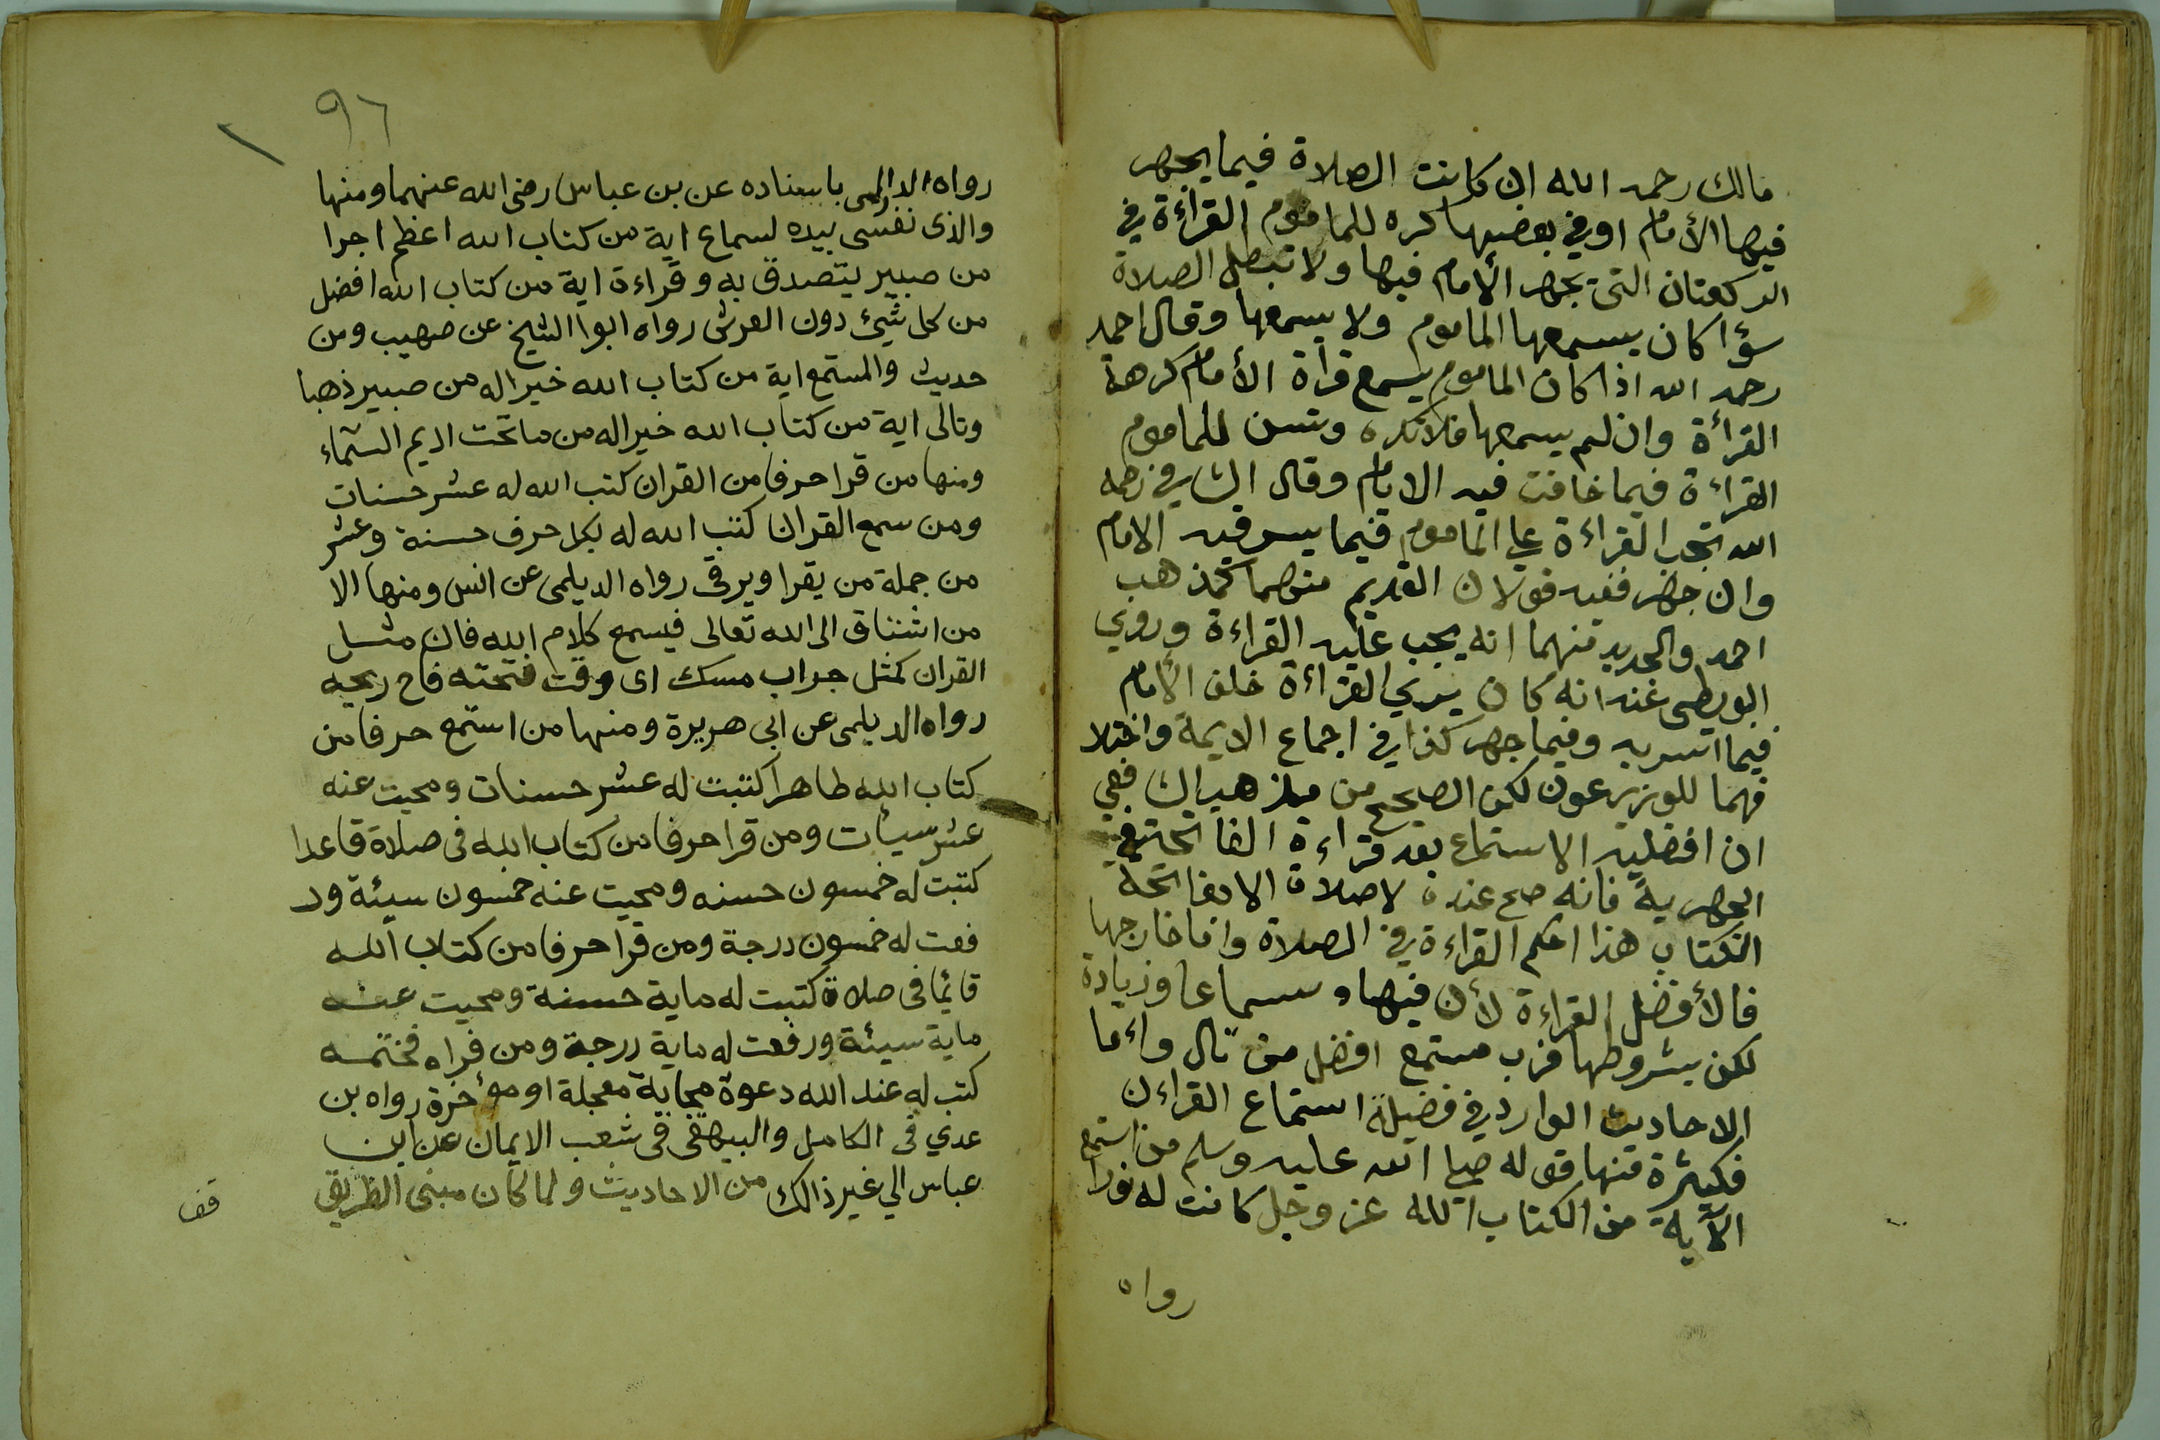 مالك رحمه الله ان كانت الصلاة فيما يجهر
فيها الأمام اوفي بعضها كره للماموم القراءة في
الركعتان التي يجهر الأمام فيها ولا تبطل الصلاة
سؤا كان يسمعها الماموم ولا يسمعها وقال احمد
رحمه الله اذا كان الماموم يسمع قرأة الأمام كرهة
القرأة وان لم يسمعها فلا تكره وتسن للماموم
القراءة فيما خافت فيه الامام وقال الشافي رحمه
الله تجب القراءة علي الماموم فيما يسر فيه الامام
وان جهر ففيه قولان القديم منهما كمذهب
احمد والجديد منهما انه يجب عليه القراءة وروي
البويطي عنه انه كان يري القراءة خلف الأمام
فيما اسر به وفيما جهر كذا في اجماع الايمة واختلا
فهما للوزير عون لكن الصحيح من مذهب الشافعي
ان افضلية الاستماع بعد قراءة الفاتحة في
الجهرية فانه صح عنده لاصلاة الا بفاتحة
الكتاب هذا احكم القراءة في الصلاة واما خارجها
فالأفضل القراءة لأن فيها سماعا وزيادة
لكن بشروطها فرب مستمع افضل من تال واءما
الاحاديث الوارد في فضيلة استماع القراءن
فكيثرة منها قوله صلي الله عليه وسلم من استمع
الآية من الكتاب الله عز وجل كانت له نورا
رواه
٩٦
رواه الدارمى باسناده عن بن عباس رضى الله عنهما ومنها
والذى نفسى بيده لسماع اية من كتاب الله اعظم اجرا
من صبير يتصدق به وقراءة اية من كتاب الله افضل
من كل شيئ دون العرش رواه ابوا الشيخ عن صهيب ومن
حديث والمستمع اية من كتاب الله خير اله من صبير ذهبا
وتالى اية من كتاب الله خير اله من ما تحت اديم السماء
ومنها من قرا حرفا من القران كتب الله له عشر حسنات
ومن سمع القران كتب الله له بكل حرف حسنة وعشر
من جملة من يقرا ويرقى رواه الديلمى عن انس ومنها الا
من اشتاق الى الله تعالى فيسمع كلام الله فان مثل
القران كمثل جراب مسك اى وقت فتحته فاح ريحه
رواه الديلمى عن ابى هريرة ومنها من استمع حرفا من
كتاب الله طاهرا كتبت له عشر حسنات ومحيت عنه
عشر سيئات ومن قرا حرفا من كتاب الله فى صلاة قاعدا
كتبت له خمسون حسنه ومحيت عنه خمسون سيئة ور
فعت له خمسون درجة ومن قرا حرفا من كتاب الله
قائما فى صلاة كتبت له ماية حسنة ومحيت عنه
ماية سيئة ورفعت له ماية درجة ومن قراه فختمه
كتب له عند الله دعوة مجابة معجلة او مؤخرة رواه بن
عدي فى الكامل والبيهقى فى شعب الايمان عن ابن
عباس الي غير ذالك من الاحاديث ولما كان مبنى الطريق